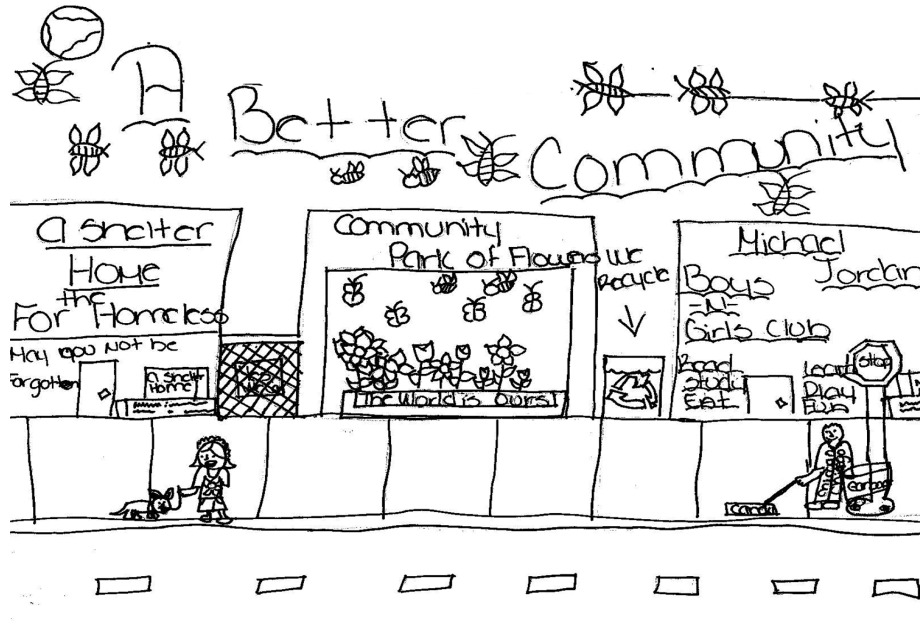 A
Better
Community
A Shelter
Home
For the Homeless
May you Not be
Forgotten
A Shelter
Home
Community
Park of Flowers
The World is Ours!
We
Recycle
Michael
Jordan
Boys
-N-
Girls Club
Read
Study
Eat
Learn
Play
Fun
Stop
Candy